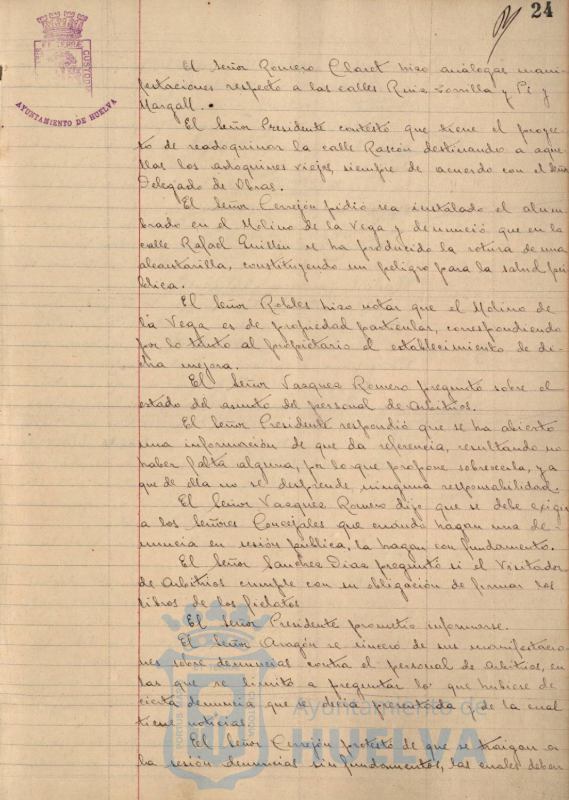 24
AYUNTAMIENTO DE HUELVA
El Señor Romero Claret hizo análogas mani-
festaciones respecto a las calles Ruiz Zorrilla y Pí y
Margall.
El Señor Presidente contestó que tiene el proyec-
to de readoquinar la calle Rascón destinando a aque-
llas los adoquines viejos, siempre de acuerdo con el Señor
Delegado de Obras.
El Señor Cerrejón pidió sea instalado el alum-
brado en el Molino de la Vega y denunció que en la
calle Rafael Guillen se ha producido la rotura de una
alcantarilla, constituyendo un peligro para la salud pú-
blica.
El Señor Robles hizo notar que el Molino de
la Vega es de propiedad particular, correspondiendo
por lo tanto al propietario el establecimiento de di-
cha mejora.
El Señor Vazquez Romero preguntó sobre el
estado del asunto del personal de Arbitrios.
El Señor Presidente respondió que se ha abierto
una información de que da referencia, resultando no
haber falta alguna, por lo que propone sobreseerla, ya
que de ella no se desprende ninguna responsabilidad.
El Señor Vazquez Romero dijo que se debe exigir
a los Señores Concejales que cuando hagan una de-
nuncia en sesión pública, la hagan con fundamento.
El Señor Sanchez Diaz preguntó si el Visitador
de Arbitrios cumple con su obligación de firmar los
libros de los fielatos.
El Señor Presidente prometió informarse.
El Señor Aragón se sinceró de sus manifestacio-
nes sobre denuncias contra el personal de Arbitrios, en
las que se limitó a preguntar lo que hubiese de
cierta denuncia que se decía presentada y de la cual
tiene noticias.
El Señor Cerrejón protestó de que se traigan a
la sesión denuncias sin fundamentos, las cuales deben
Ayuntamiento de
HUELVA